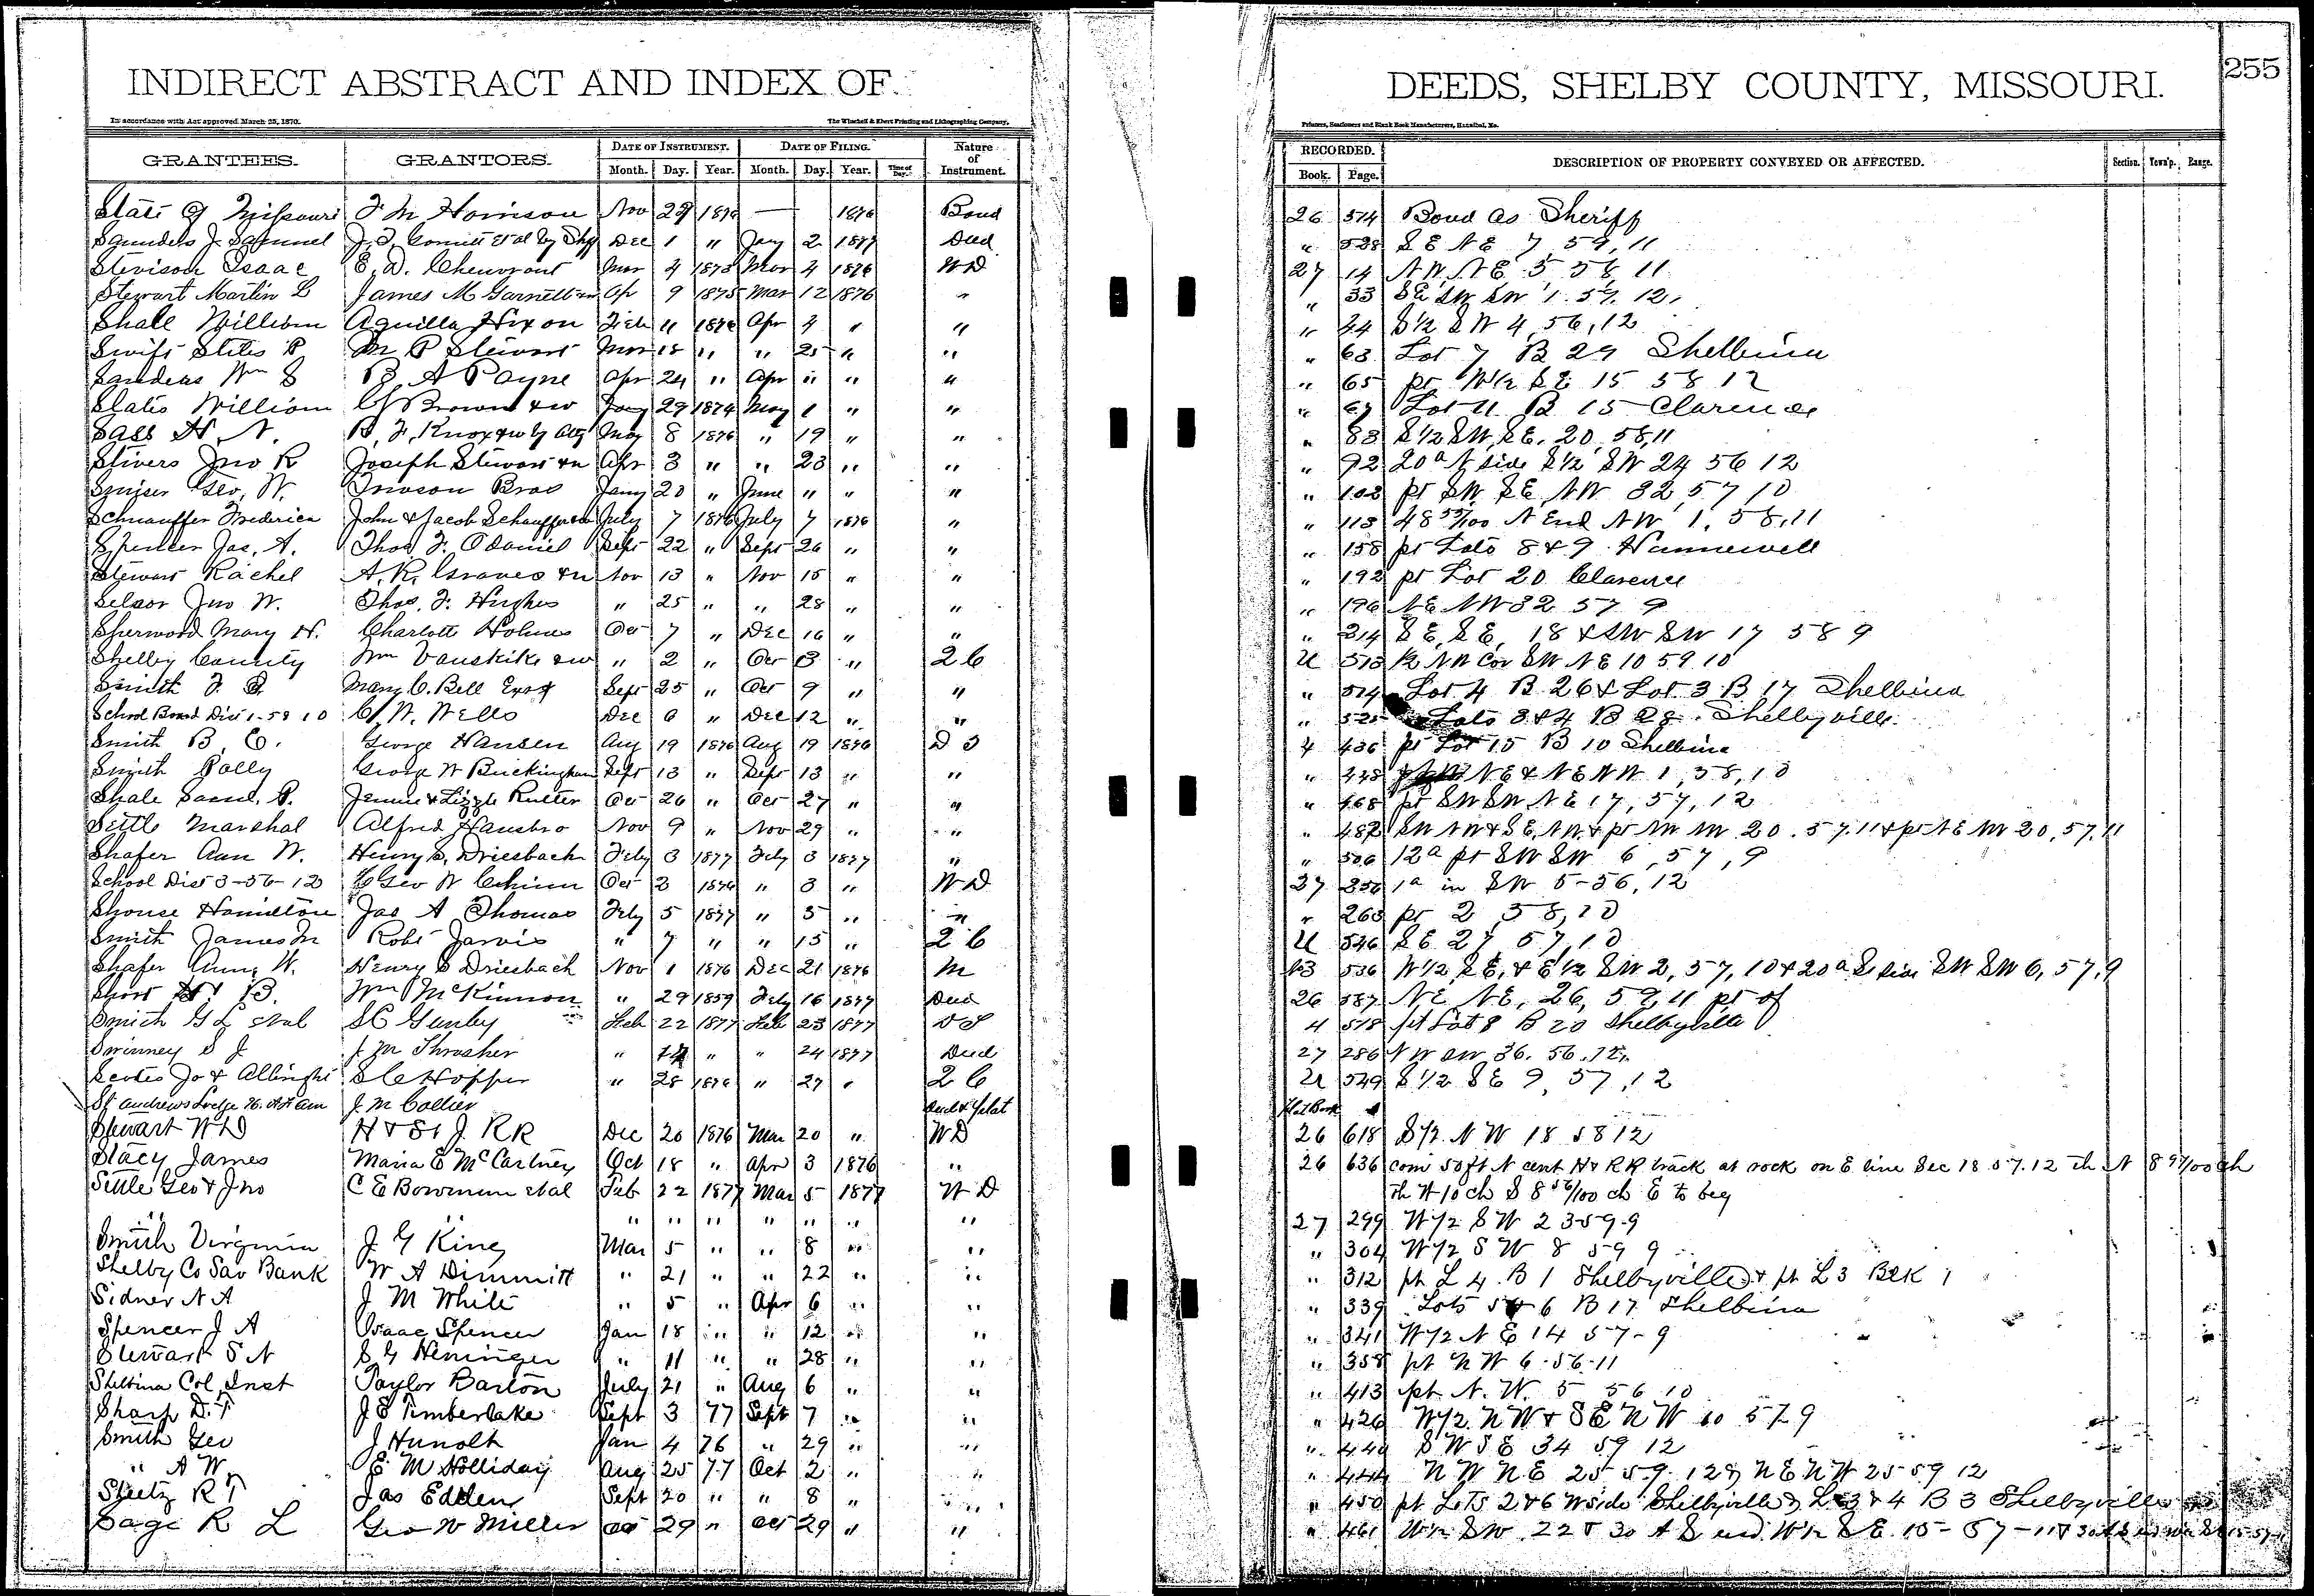 INDIRECT ABSTRACT AND INDEX OF
DEEDS, SHELBY COUNTY, MISSOURI.
255
In accordance with Act approved March 25, 1870.
The Winchell & Ebert Printing and Lithographing Company,
Printers, Stationers and Blank Book Manufacturers, Hannibal, Mo.
GRANTEES. GRANTORS. DATE OF INSTRUMENT. DATE OF FILING. Nature of Instrument. RECORDED. DESCRIPTION OF PROPERTY CONVEYED OR AFFECTED. Section. Town'p. Range.
Month. Day. Year. Month. Day. Year. Time of Day. Book. Page.
State of Missouri F M Harrison Nov 29 1876 — 1876 Bond 26 514 Bond as Sheriff
Saunders J. Samuel J. F. et al by Shff Dec 1 " Jany 2 1877 Deed " 528 S E N E 7, 59, 11
Stevison Isaac E. D. Chenoront Mar 4 1873 Mar 4 1876 W D 27 14 N W, N E 5 58 11
Stewart Martin L James M Garnett Ap 9 1875 Mar 12 1876 " " 33 S E S W S W 1. 57. 12.
Shall William Aquilla Hixon Feb 11 1876 Apr 4 " " " 44 S 1/2 S W 4, 56, 12
Swift Stites P M P Stewart Mar 18 " " 25 " " " 63 Lot 7 B 29 Shelbina
Sanders Wm S B. A Payne Apr 24 " Apr " " " " 65 pt W 1/2 S E 15 58 12
Slates William Brown & w Jany 29 1874 May 1 " " " 67 Lot 11 B 15 Clarence
Sass H. N. R. F. Knox & w by Atty May 8 1876 " 19 " " " 83 S 1/2 S W, S E. 20 58, 11
Stivers Jno R Joseph Stewart & w Apr 3 " " 23 " " " 92 20 a N side S 1/2 S W 24 56 12
Smiser Geo. W. Bros Jany 20 " June " " " " 102 pt S W S E, N W 32 57 10
Schnauffer Frederica John & Jacob Schauffer July 7 1876 July 7 1876 " " 113 48 55/100 N End N W 1, 58, 11
Spencer Jas. A. Thos. F. Odaniel Sept 22 " Sept 26 " " " 158 pt Lots 8 & 9 Hunnewell
Stewart Rachel A. R. Graves & w Nov 13 " Nov 15 " " " 192 pt Lot 20 Clarence
Selsor Jno W. Thos. F. Hughes " 25 " " 28 " " " 196 N E N W 32 57 9
Sherwood Mary H. Charlotte Holmes Oct 7 " Dec 16 " " " 214 S E, S E, 18 & S W S W 17 58 9
Shelby County Wm Vanskike & w " 2 " Oct 13 " 2 C U 513 1/2 N W Cor S W N E 10 59 10
Smith F. Mary C. Bell Sept 25 " Oct 9 " " " 514 Lot 4 B 26 & Lot 3 B 17 Shelbina
School Board Dist 1-59 10 C. W. Wells Dec 6 " Dec 12 " " " 525 Lots 3 & 4 B 28. Shelbyville.
Smith B. C. George Hansen Aug 19 1876 Aug 19 1876 D T 4 436 pt Lot 15 B 10 Shelbina
Smith Polly George W Buckingham Sept 13 " Sept 13 " " " 448 N E & N E N W 1, 58, 10
Shale Saml. P. Jennie & Lizzie Rutter Oct 26 " Oct 27 " " " 468 pt S W S W N E 17, 57, 12
Settle Marshal Alfred Hansbro Nov 9 " Nov 29 " " " 482 S W N W & S E, N W. & pt N W N W 20. 57. 11 & pt N E N W 20, 57, 11
Shafer Ann W. Henry S. Driesbach Feby 3 1877 Feby 3 1877 " " 506 12 a pt S W S W 6, 57, 9
School Dist 3-56-12 Geo W Chinn Oct 2 1876 " 3 " W D 27 256 1 a in S W 5-56, 12
Shouse Hamilton Jas A Thomas Feby 5 1877 " 5 " " " 263 pt 2 58, 10
Smith James M Robt Jarvis " 7 " " 15 " 2 C U 546 S E 27 57, 10
Shafer Ann W. Henry S Driesbach Nov 1 1876 Dec 21 1876 M 13 536 W 1/2, S E, & E 1/2 S W 2, 57, 10 & 20 a S side S W S W 6, 57, 9
Short H. B. Wm McKinnon " 29 1859 Feby 16 1877 Deed 26 587 N E N E, 26, 59, 11 pt of
Smith G L et al S C Gunby Feb 22 1877 Feb 23 1877 D T 4 518 pt Lot 8 B 20 Shelbyville
Swinney S J J. M Thrasher " 17 " " 24 1877 Deed 27 286 N W S W 36. 56. 12.
Scotes Jo & Allbright S C Hopper " 28 1876 " 27 " 2 C U 549 S 1/2 S E 9, 57, 12
St Andrews Lodge J. M Collier Deed & Plat Plat Book
Stewart W D H & St J. RR Dec 20 1876 Mar 20 " W D 26 618 S 1/2 N W 18 58 12
Stacy James Maria E McCartney Oct 18 " Apr 3 1876 " 26 636 com 50 ft N cent H & RR track at rock on E line Sec 18 57. 12 Th N 8 97/100 ch
Settle Geo & Jno C E Bowman et al Feb 22 1877 Mar 5 1877 W D Th W 10 ch S 8 56/100 ch E to beg
" " " " " " " " " 27 299 W 1/2 S W 23-59-9
Smith Virginia J G King Mar 5 " " 8 " " " 304 W 1/2 S W 8 59 9
Shelby Co Sav Bank W A Dimmitt " 21 " " 22 " " " 312 pt L 4 B 1 Shelbyville & pt L 3 BLK 1
Sidner N A J M White " 5 " Apr 6 " " " 339 Lots 5 & 6 B 17 Shelbina
Spencer J A Isaac Spencer Jan 18 " " 12 " " " 341 W 1/2 N E 14 57-9
Stewart S N S G Heninger " 11 " " 28 " " " 358 pt N W 6-56-11
Shelbina Col. Inst Taylor Barton July 21 " Aug 6 " " " 413 pt N. W. 5 56 10
Sharp D. T J E Timberlake Sept 3 77 Sept 7 " " " 426 W 1/2 N W & S E N W 10 57 9
Smith Geo J Hunolt Jan 4 76 " 29 " " " 440 S W S E 34 59 12
" A W E M Holliday Aug 25 77 Oct 2 " " " 444 N W N E 25 59 12 & N E N W 25 59 12
Sheetz R T Jas Edelen Sept 20 " " 8 " " " 450 pt Lots 2 & 6 W side Shelbyville & L 3 & 4 B 3 Shelbyville
Sage R L Geo W Miller Oct 29 " Oct 29 " " " 461 W 1/2 S W 22 & 30 A S end W 1/2 S E 15-57-11